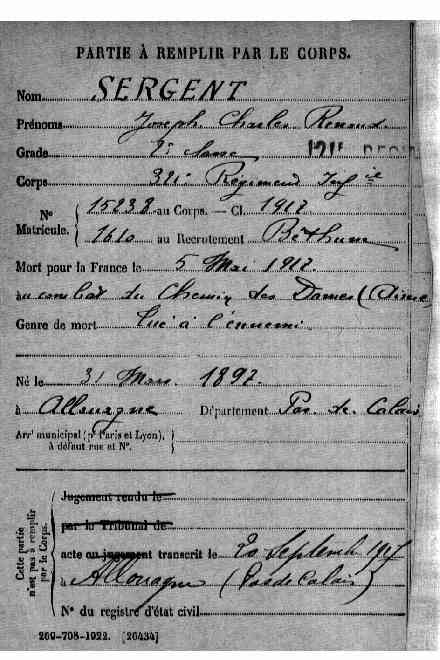 PARTIE À REMPLIR PAR LE CORPS.
Nom SERGENT
Prénoms Joseph Charles Renaud
Grade 2e classe
Corps 321e Régiment Infie
No Matricule. { 15238 au Corps. — Cl. 1917
1610 au Recrutement Béthune
Mort pour la France le 5 Mai 1917.
au combat du Chemin des Dames (Aisne
Genre de mort Tué à l'ennemi
Né le 31 Mars 1897.
à Allouagne Département Pas de Calais
Arrt municipal (pr Paris et Lyon),
à défaut rue et No.
Cette partie n'est pas à remplir par le Corps.
Jugement rendu le
par le Tribunal de
acte ou jugement transcrit le 20 Septembre 1917
à Allouagne (Pas de Calais)
No du registre d'état civil
269-708-1922. [26434]